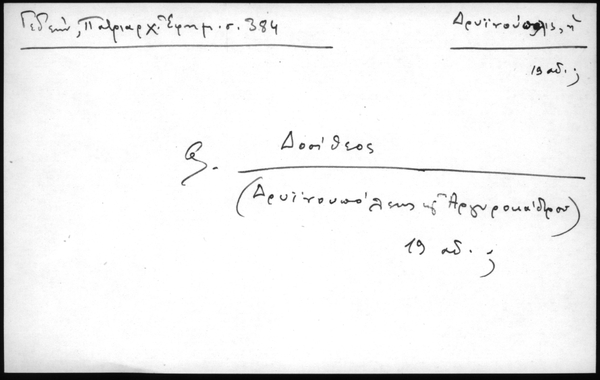 Γεδεών, Πατριαρχ. Ἐφημ. σ. 384
Δρυϊνούπολις, ἡ
19 αἰ. ;
Δοσίθεος
(Δρυϊνουπόλεως κ Ἀργυροκάστρου)
19 αἰ. ;